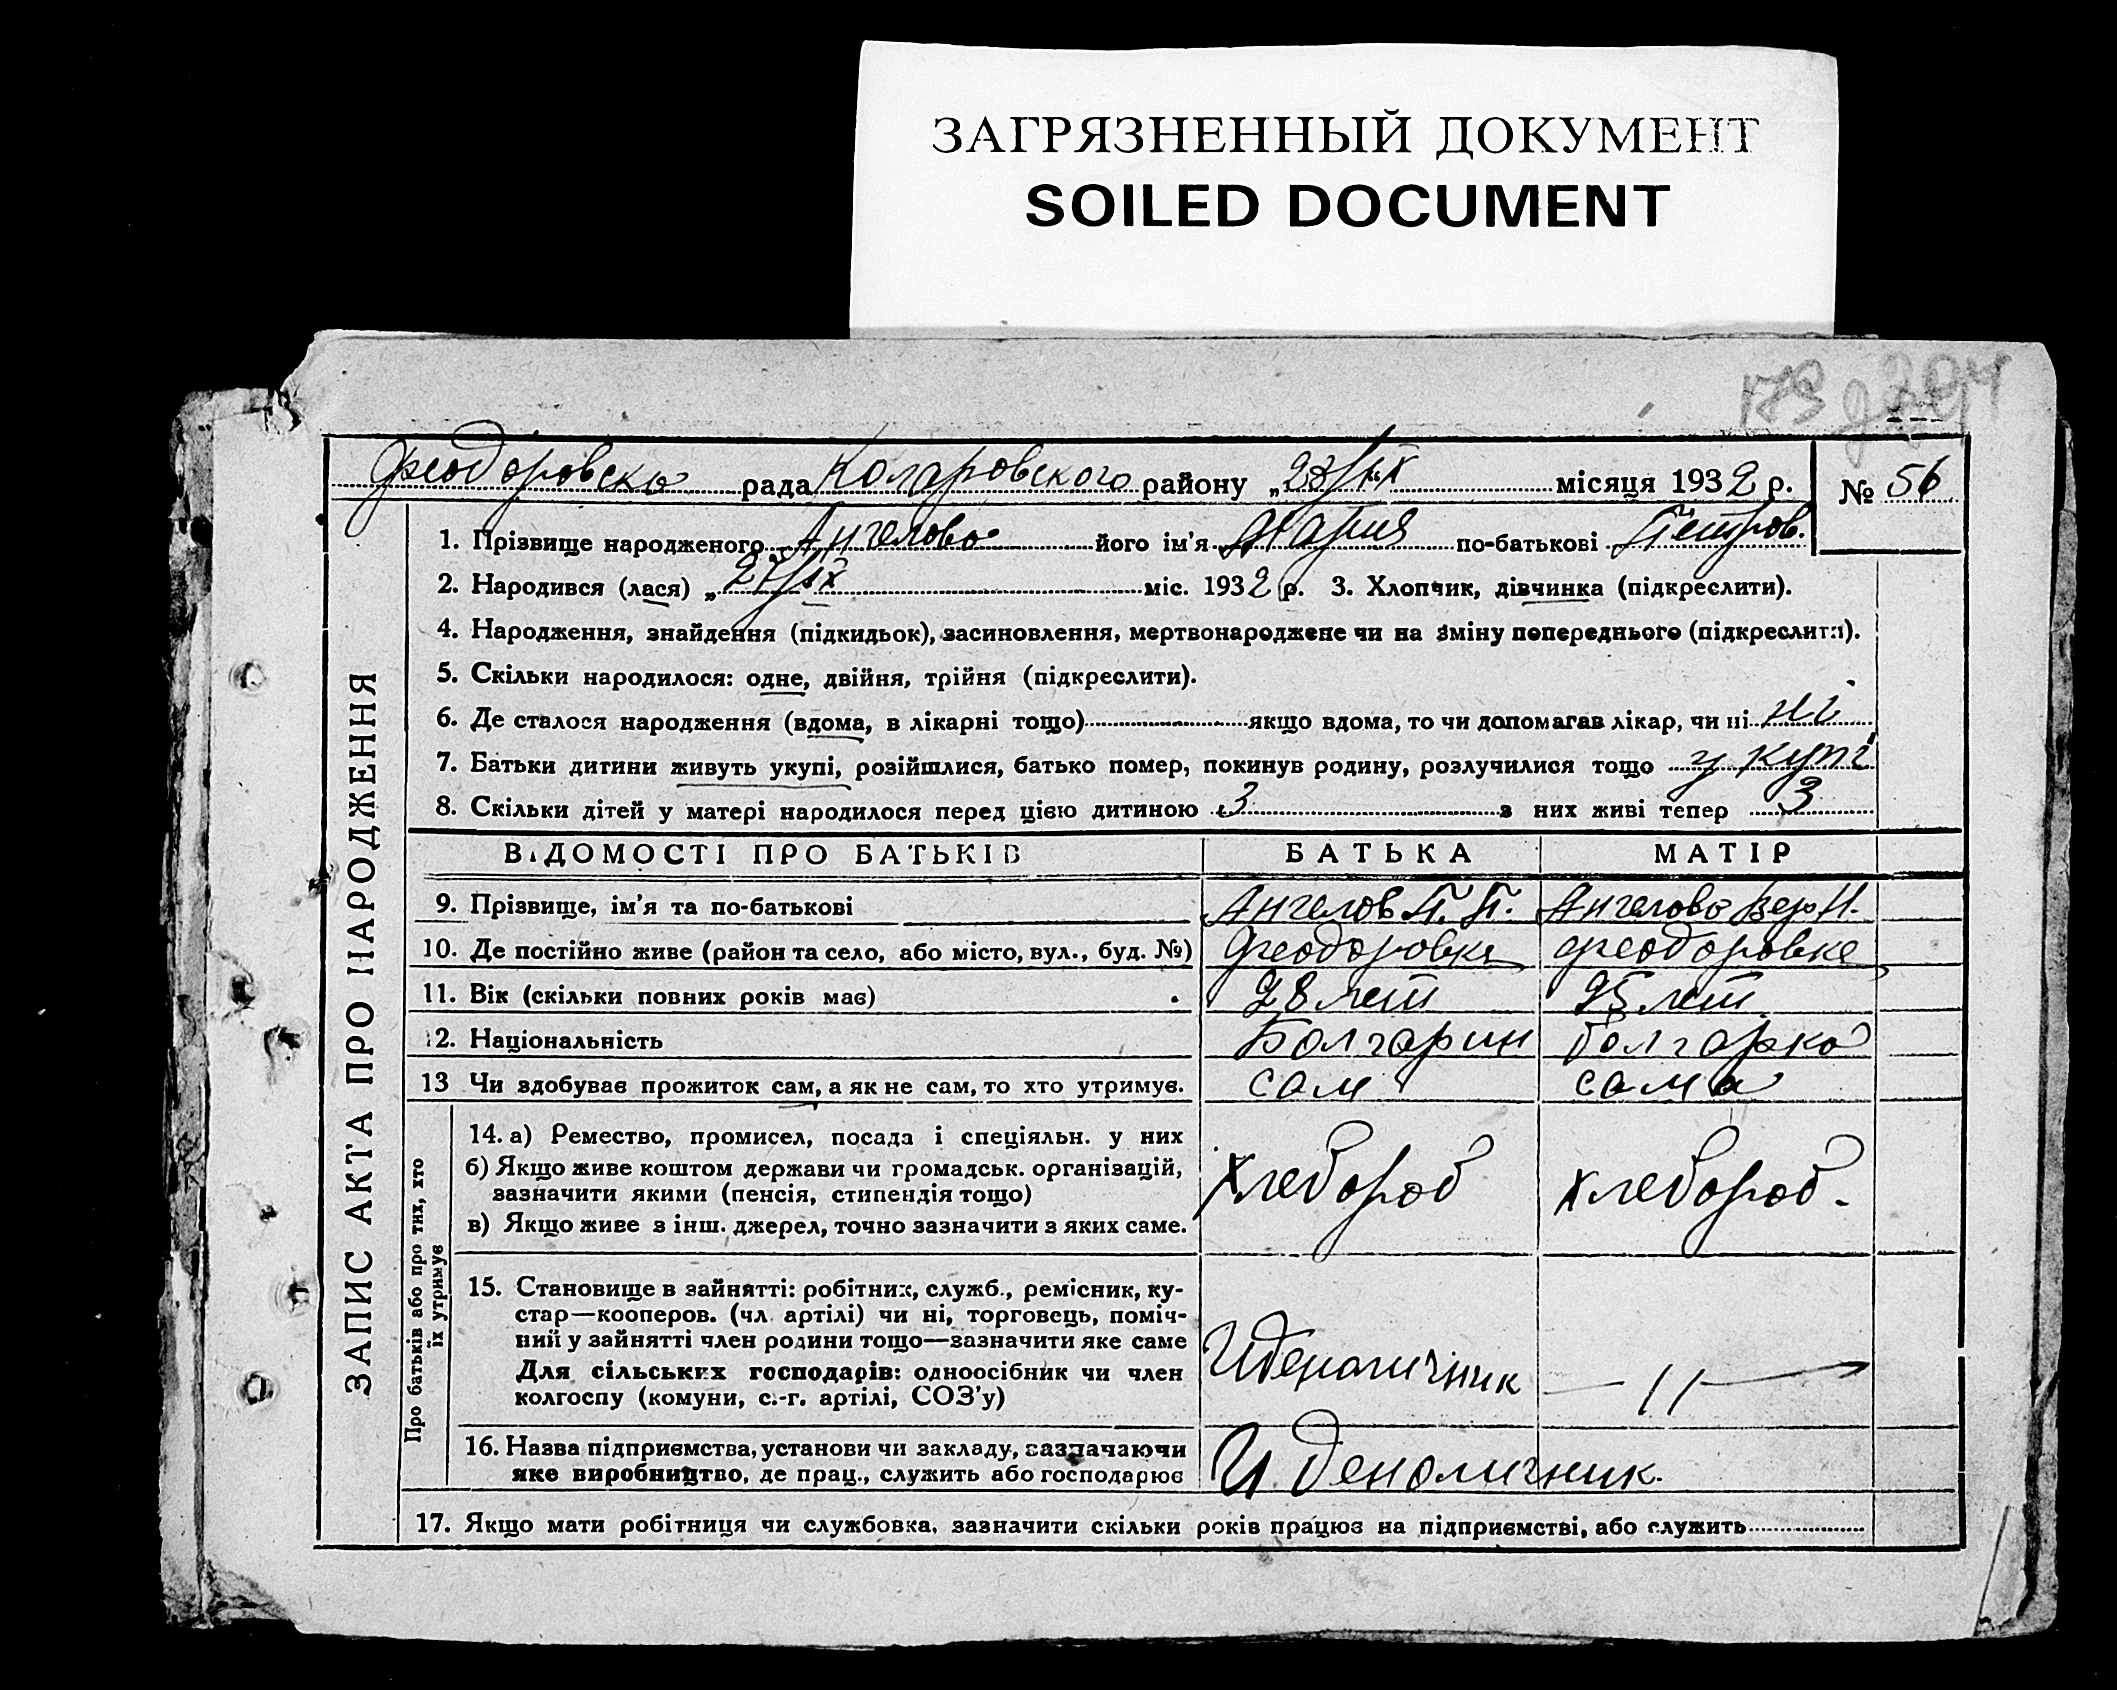 ЗАГРЯЗНЕННЫЙ ДОКУМЕНТ
SOILED DOCUMENT
Феодоровска рада Коларовского району „28/IX місяця 1932 р. № 56
ЗАПИС АКТА ПРО НАРОДЖЕННЯ
1. Прізвище народженого Ангелова його ім'я Мария по-батькові Петров.
2. Народився (лася) „27/IX міс. 1932 р. 3. Хлопчик, дівчинка (підкреслити).
4. Народження, знайдення (підкидьок), засиновлення, мертвонароджене чи на зміну попереднього (підкреслити).
5. Скільки народилося: одне, двійня, трійня (підкреслити).
6. Де сталося народження (вдома, в лікарні тощо) якщо вдома, то чи допомагав лікар, чи ні ні
7. Батьки дитини живуть укупі, розійшлися, батько помер, покинув родину, розлучилися тощо у купі
8. Скільки дітей у матері народилося перед цією дитиною 3 з них живі тепер 3
ВІДОМОСТІ ПРО БАТЬКІВ БАТЬКА МАТІР
9. Прізвище, ім'я та по-батькові Ангелов П. П. Ангелова Вера Н.
10. Де постійно живе (район та село, або місто, вул., буд. №) Феодоровке Феодоровке
11. Вік (скільки повних років має) 28 лет 25 лет
12. Національність Болгарин болгарка
13 Чи здобуває прожиток сам, а як не сам, то хто утримує. сам сама
Про батьків або про тих, хто їх утримує
14. а) Ремество, промисел, посада і спеціяльн. у них
б) Якщо живе коштом держави чи громадськ. організацій,
зазначити якими (пенсія, стипендія тощо) хлебороб хлебороб.
в) Якщо живе з інш. джерел, точно зазначити з яких саме.
15. Становище в зайнятті: робітник, служб., ремісник, ку-
стар—кооперов. (чл. артілі) чи ні, торговець, поміч-
ний у зайнятті член родини тощо—зазначити яке саме
Для сільських господарів: одноосібник чи член
колгоспу (комуни, с.-г. артілі, СОЗ'у) — 11 —
16. Назва підприємства, установи чи закладу, зазначаючи
яке виробництво, де прац., служить або господарює
17. Якщо мати робітниця чи службовка, зазначити скільки років працює на підприємстві, або служить